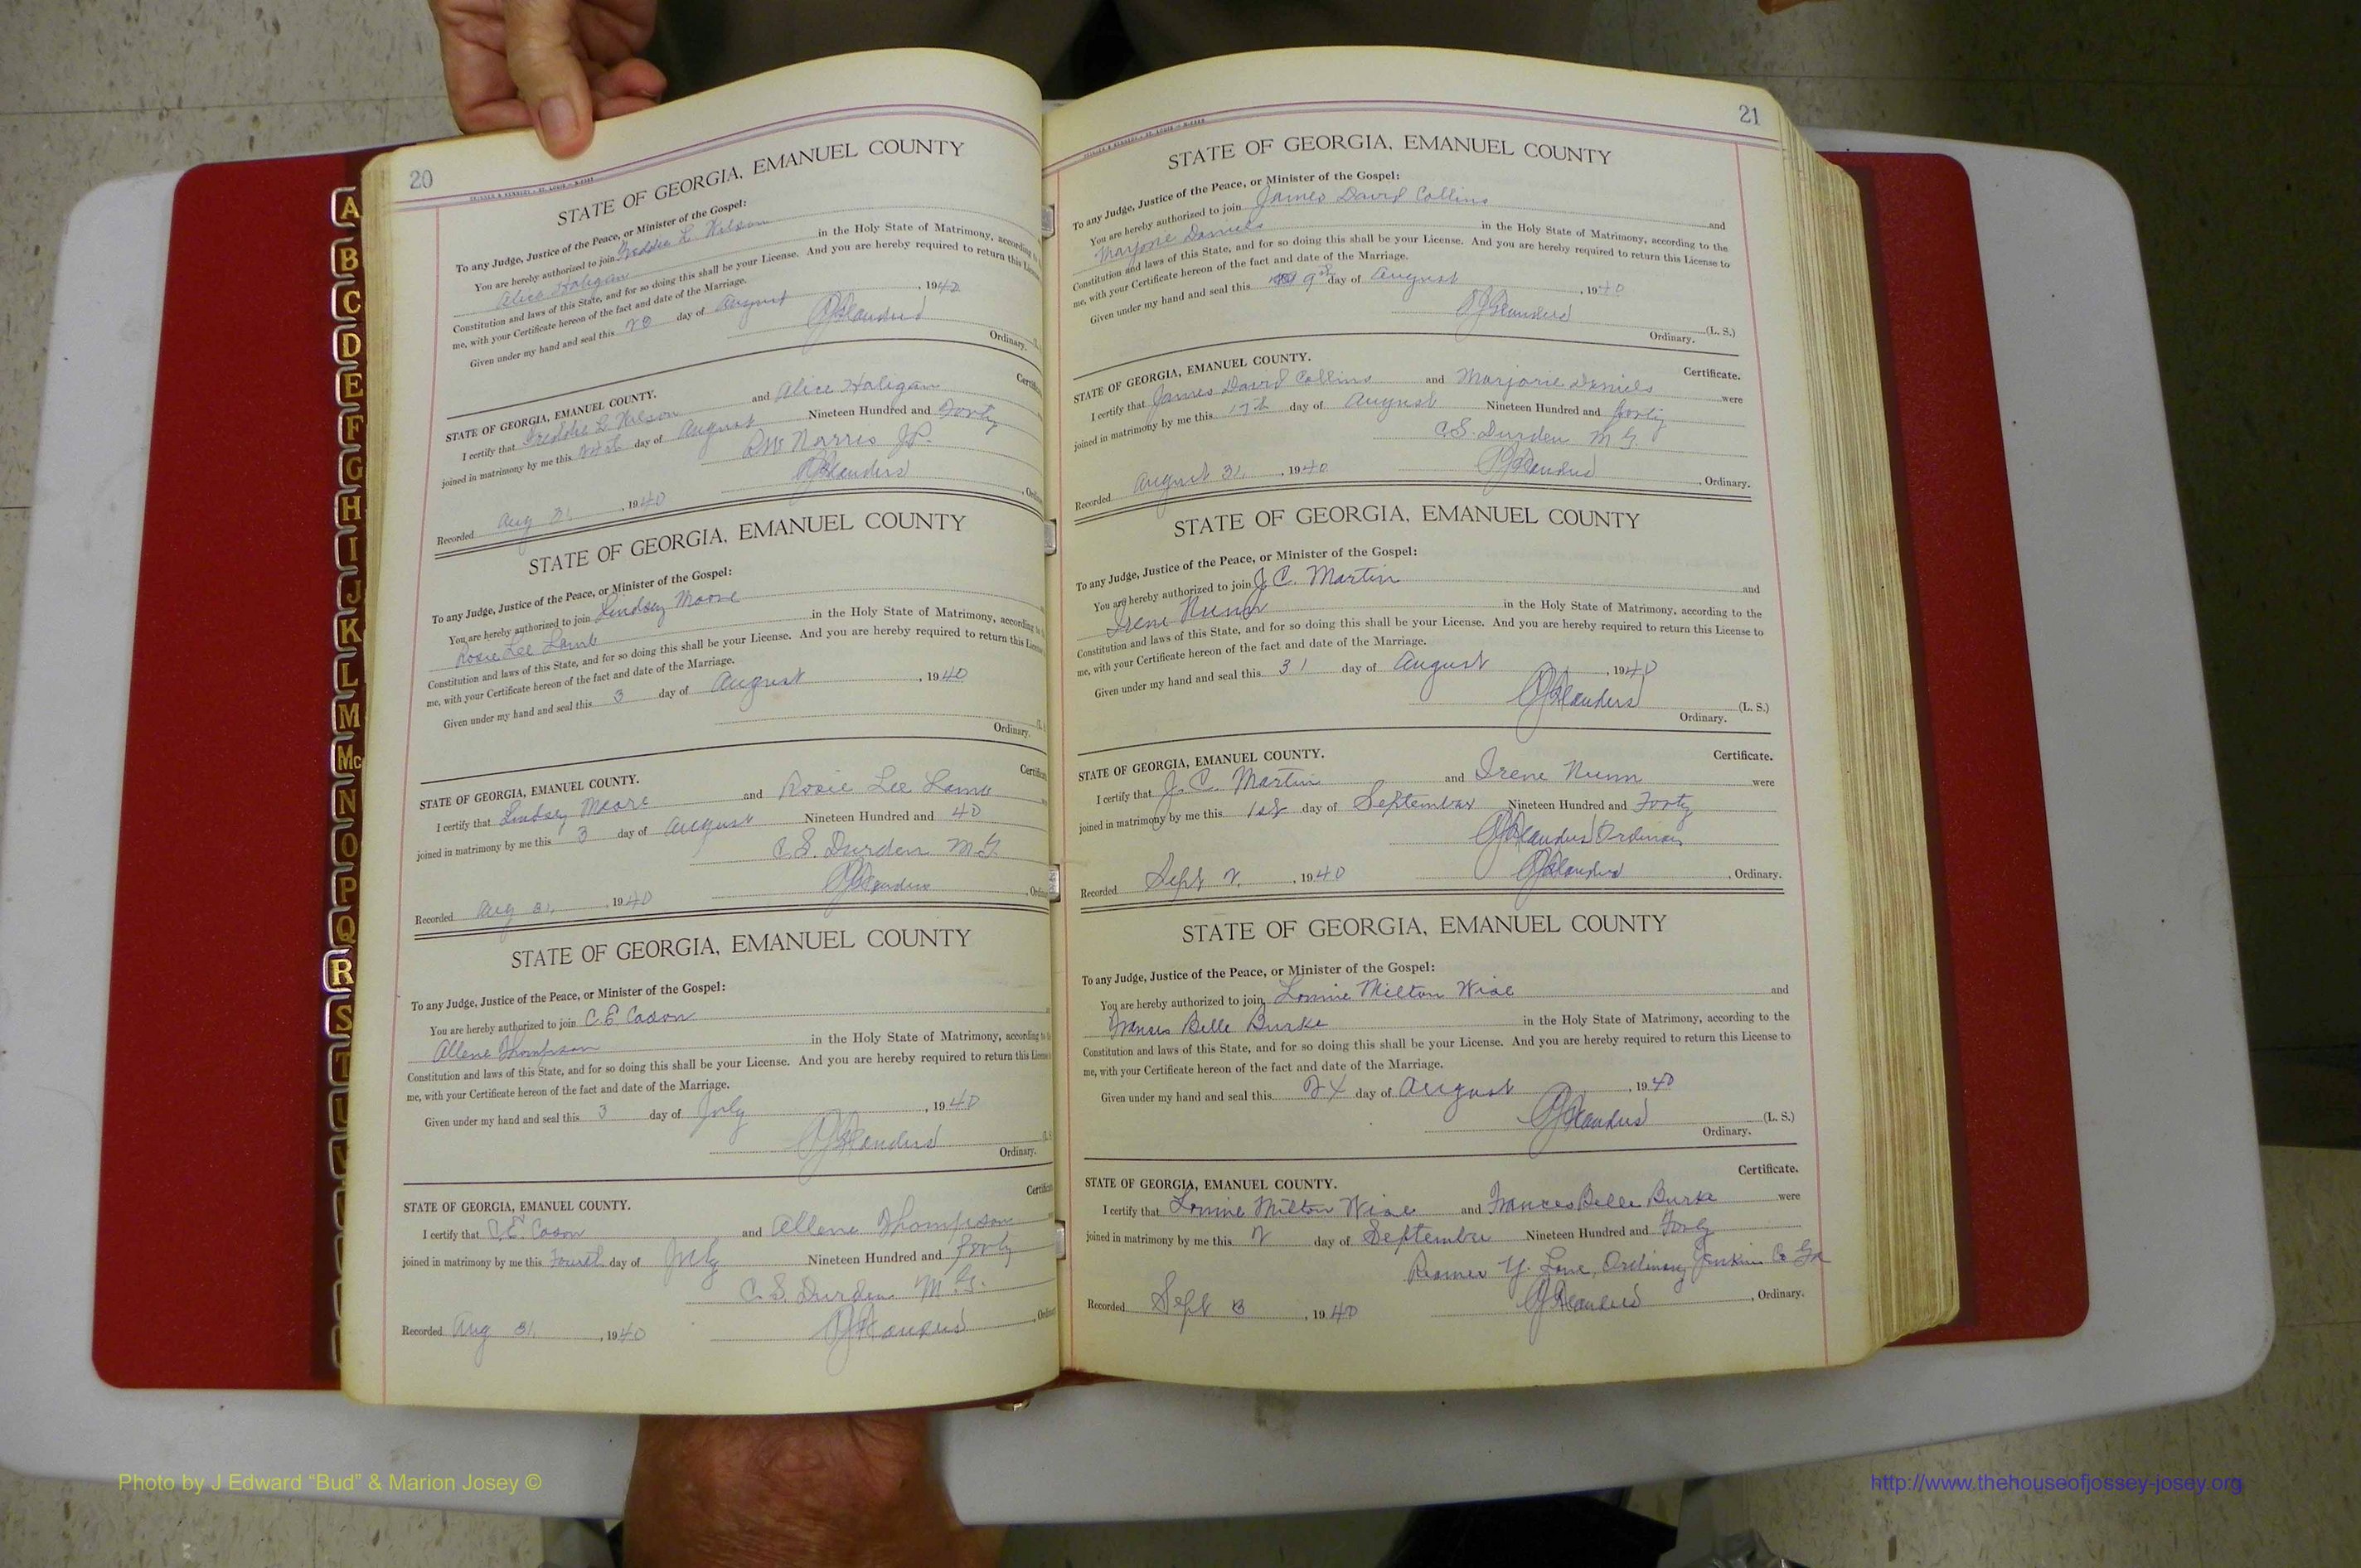 20
STATE OF GEORGIA, EMANUEL COUNTY
To any Judge, Justice of the Peace, or Minister of the Gospel:
You are hereby authorized to join Freddie L. Wilson
Alice Haligan in the Holy State of Matrimony, according to
Constitution and laws of this State, and for so doing this shall be your License. And you are hereby required to return this
me, with your Certificate hereon of the fact and date of the Marriage.
Given under my hand and seal this 20 day of August, 1940
Ordinary.
STATE OF GEORGIA, EMANUEL COUNTY.
I certify that Freddie L. Wilson and Alice Haligan
joined in matrimony by me this day of August Nineteen Hundred and Forty
Norris J.P.
Recorded Aug 31, 1940
STATE OF GEORGIA, EMANUEL COUNTY
To any Judge, Justice of the Peace, or Minister of the Gospel:
You are hereby authorized to join Lindsey Moore
Rosie Lee Lamb in the Holy State of Matrimony, according to
Constitution and laws of this State, and for so doing this shall be your License. And you are hereby required to return this
me, with your Certificate hereon of the fact and date of the Marriage.
Given under my hand and seal this 3 day of August, 1940
Ordinary.
STATE OF GEORGIA, EMANUEL COUNTY.
I certify that Lindsey Moore and Rosie Lee Lamb
joined in matrimony by me this 3 day of August Nineteen Hundred and 40
C.S. Durden M.G.
Recorded Aug 31, 1940
STATE OF GEORGIA, EMANUEL COUNTY
To any Judge, Justice of the Peace, or Minister of the Gospel:
You are hereby authorized to join C.E. Cason
Allene Thompson in the Holy State of Matrimony, according to
Constitution and laws of this State, and for so doing this shall be your License. And you are hereby required to return this
me, with your Certificate hereon of the fact and date of the Marriage.
Given under my hand and seal this 3 day of July, 1940
Ordinary.
STATE OF GEORGIA, EMANUEL COUNTY.
I certify that C.E. Cason and Allene Thompson
joined in matrimony by me this Fourth day of July Nineteen Hundred and forty
C. S. Durden M.G.
Recorded Aug 31, 1940
21
STATE OF GEORGIA, EMANUEL COUNTY
To any Judge, Justice of the Peace, or Minister of the Gospel:
You are hereby authorized to join James David Collins and
Marjorie Daniels in the Holy State of Matrimony, according to the
Constitution and laws of this State, and for so doing this shall be your License. And you are hereby required to return this License to
me, with your Certificate hereon of the fact and date of the Marriage.
Given under my hand and seal this 9th day of August, 1940
(L. S.)
Ordinary.
Certificate.
STATE OF GEORGIA, EMANUEL COUNTY.
I certify that James David Collins and Marjorie Daniels were
joined in matrimony by me this 17th day of August Nineteen Hundred and forty
C.S. Durden M.G.
Recorded August 31, 1940 , Ordinary.
STATE OF GEORGIA, EMANUEL COUNTY
To any Judge, Justice of the Peace, or Minister of the Gospel:
You are hereby authorized to join J.C. Martin and
Irene Nunn in the Holy State of Matrimony, according to the
Constitution and laws of this State, and for so doing this shall be your License. And you are hereby required to return this License to
me, with your Certificate hereon of the fact and date of the Marriage.
Given under my hand and seal this 31 day of August, 1940
(L. S.)
Ordinary.
Certificate.
STATE OF GEORGIA, EMANUEL COUNTY.
I certify that J.C. Martin and Irene Nunn were
joined in matrimony by me this 1st day of September Nineteen Hundred and Forty
Ordinary
Recorded Sept 2, 1940 , Ordinary.
STATE OF GEORGIA, EMANUEL COUNTY
To any Judge, Justice of the Peace, or Minister of the Gospel:
You are hereby authorized to join Lonnie Milton Wise and
Frances Belle Burke in the Holy State of Matrimony, according to the
Constitution and laws of this State, and for so doing this shall be your License. And you are hereby required to return this License to
me, with your Certificate hereon of the fact and date of the Marriage.
Given under my hand and seal this 24 day of August, 1940
(L. S.)
Ordinary.
Certificate.
STATE OF GEORGIA, EMANUEL COUNTY.
I certify that Lonnie Milton Wise and Frances Belle Burke were
joined in matrimony by me this 2 day of September Nineteen Hundred and Forty
Y. Lane, Ordinary Jenkins Co Ga
Recorded Sept 3, 1940 , Ordinary.
A
B
C
D
E
F
G
H
I
J
K
L
M
Mc
N
O
P
Q
R
S
T
U
V
Photo by J Edward “Bud” & Marion Josey ©
http://www.thehouseofjossey-josey.org